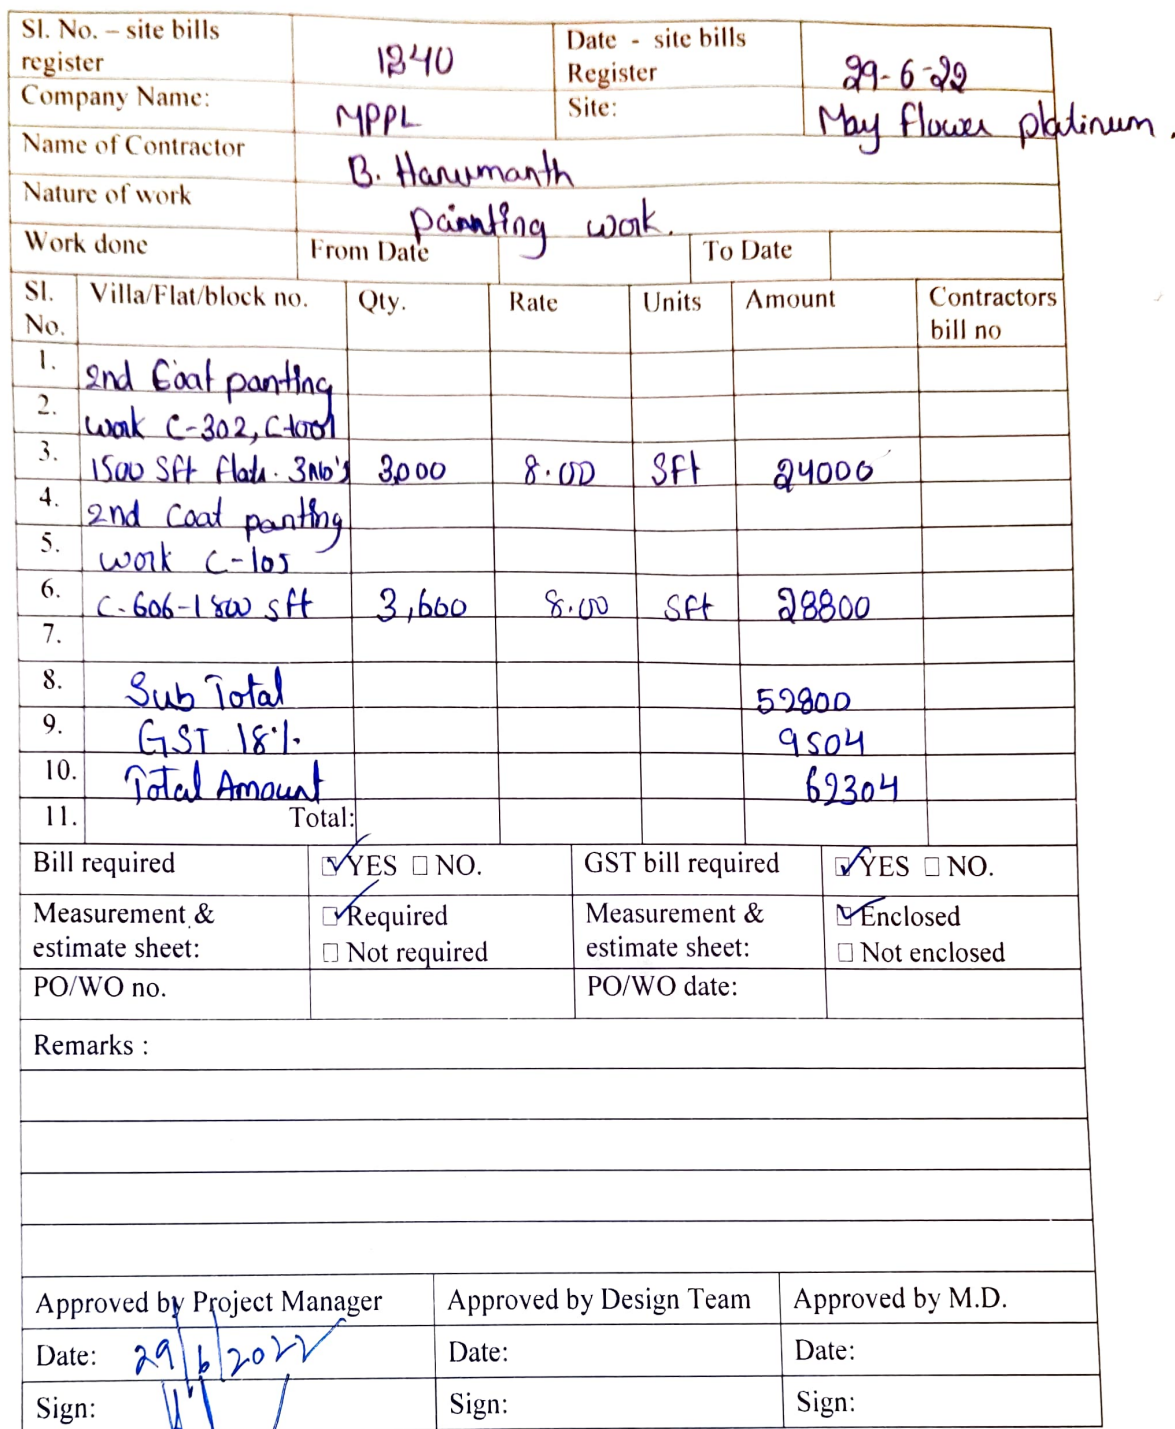 Sl. No. – site bills register 1240 Date - site bills Register 29-6-22
Company Name: MPPL Site: May flower platinum.
Name of Contractor B. Hanumanth
Nature of work painting work.
Work done From Date To Date
Sl. No. Villa/Flat/block no. Qty. Rate Units Amount Contractors bill no
1. 2nd Coat panting
2. work C-302,
3. 1500 Sft flats. 3No's 3,000 8.00 Sft 24000
4. 2nd Coat panting
5. work C-105
6. C-606-1800 sft 3,600 8.00 Sft 28800
7.
8. Sub Total 52800
9. GST 18% 9504
10. Total Amount 62304
11. Total:
Bill required ☑ YES ☐ NO. GST bill required ☑ YES ☐ NO.
Measurement & estimate sheet: ☑ Required ☐ Not required Measurement & estimate sheet: ☑ Enclosed ☐ Not enclosed
PO/WO no. PO/WO date:
Remarks :
Approved by Project Manager Approved by Design Team Approved by M.D.
Date: 29/6/2022 Date: Date:
Sign: Sign: Sign: